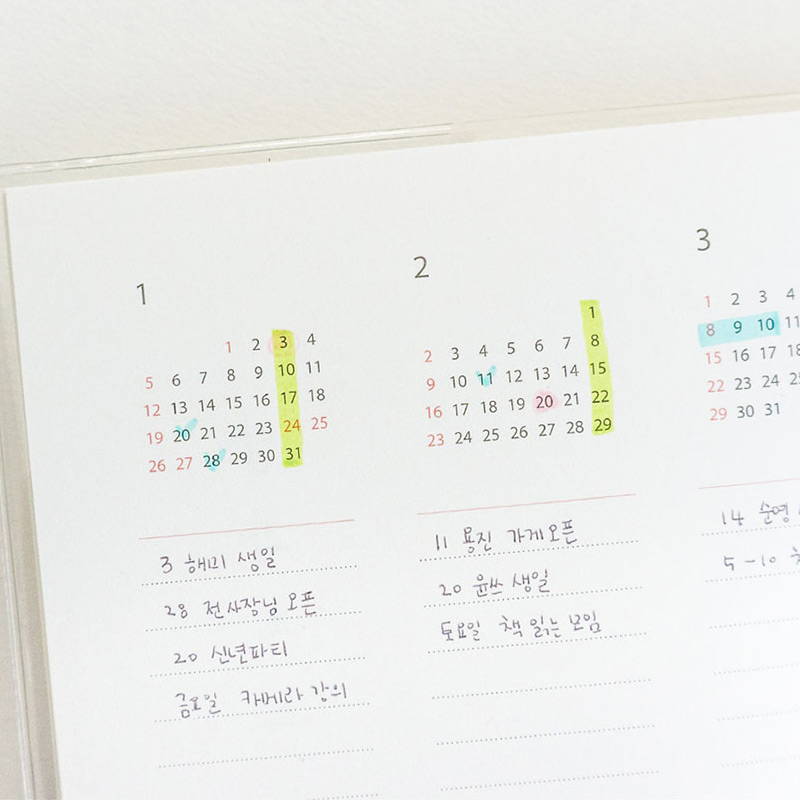 1
1 2 3 4
5 6 7 8 9 10 11
12 13 14 15 16 17 18
19 20 21 22 23 24 25
26 27 28 29 30 31
3 해미 생일
28 전사장님 오픈
20 신년파티
금요일 카메라 강의
2
1
2 3 4 5 6 7 8
9 10 11 12 13 14 15
16 17 18 19 20 21 22
23 24 25 26 27 28 29
11 용진 가게오픈
20 윤쓰 생일
토요일 책 읽는 모임
3
1 2 3 4
8 9 10 11
15 16 17 18
22 23 24
29 30 31
14 순영
5-10